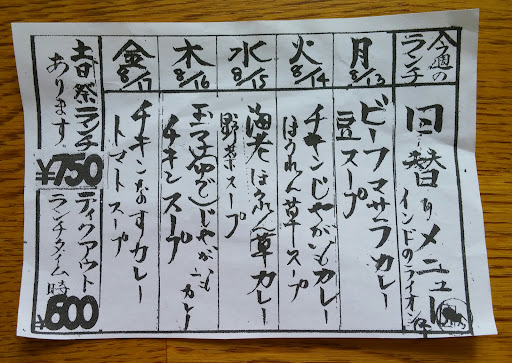 今週の
ランチ
日替りメニュー
インドのライオン
月
8/13
ビーフマサラカレー
豆スープ
火
8/14
チキンじゃがいもカレー
ほうれん草スープ
水
8/15
海老ほうれん草カレー
野菜スープ
木
8/16
玉子(ゆで)じゃがいもカレー
チキンスープ
金
8/17
チキンなすカレー
トマトスープ
土日祭ランチ
あります。
¥750
ティクアウト
ランチタイム時
¥600